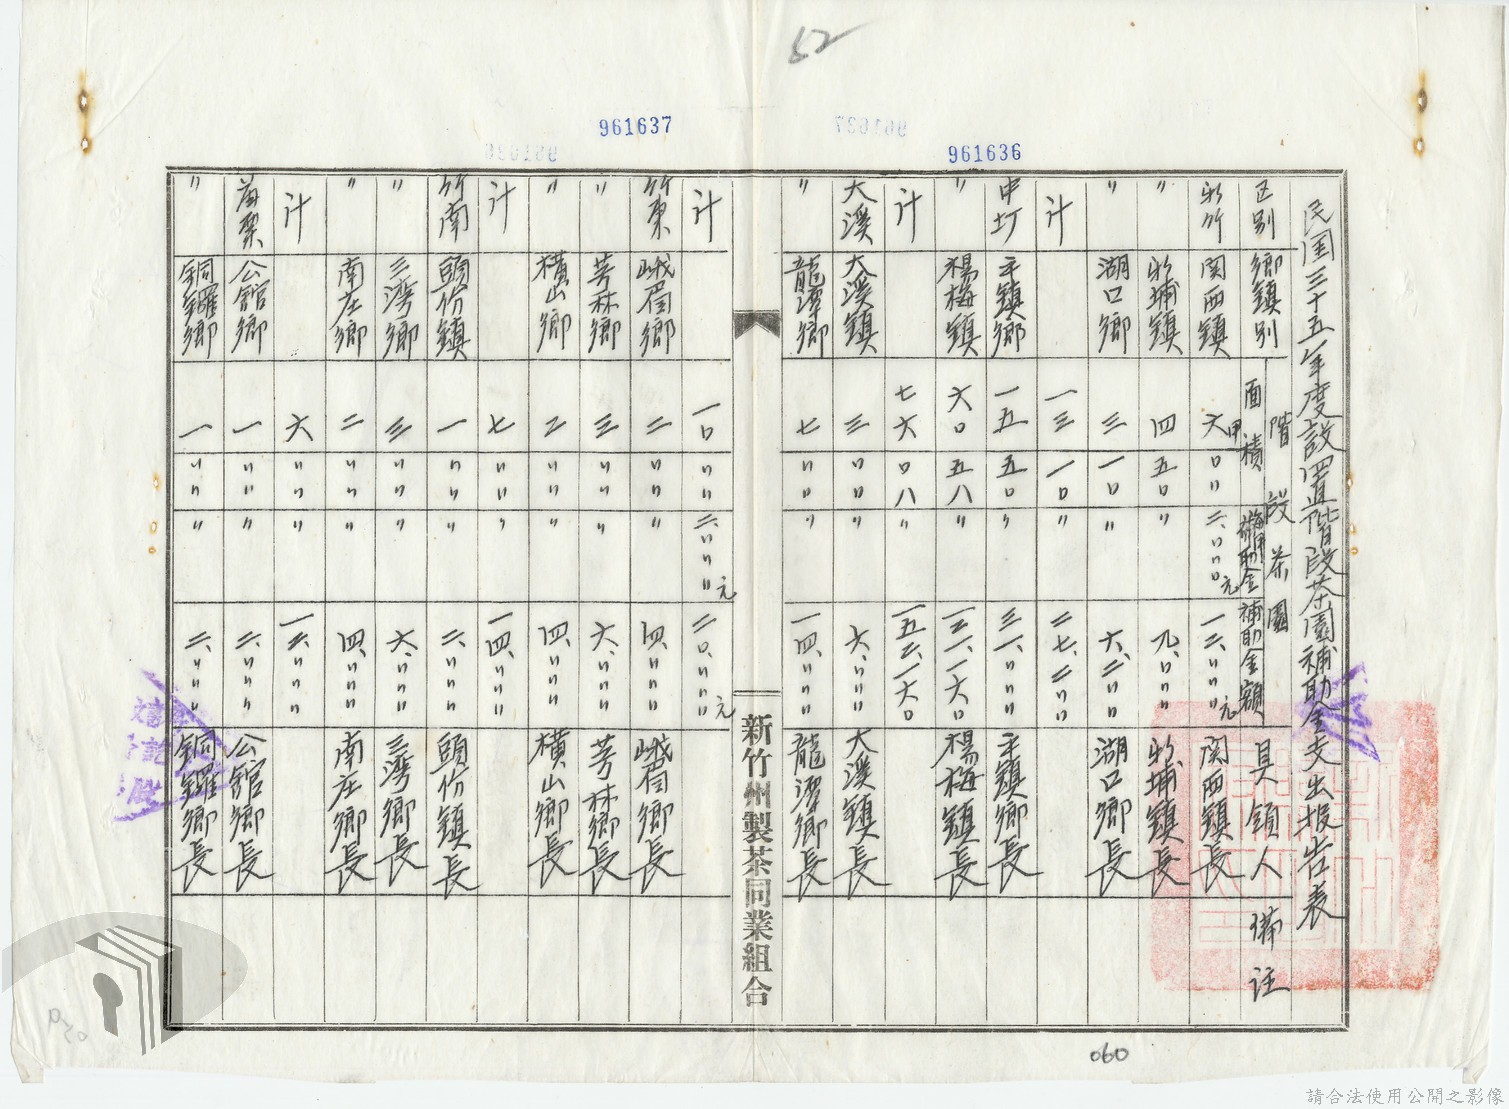 52
961637
961636
民国三十五年度設置階段茶園補助金支出報告表
区別 鄉鎮別 階段茶園 面積 每甲補助金 補助金額 具領人 備註
新竹 関西鎮 六甲〇〃 二、〃〃〇元 一二、〃〃〃元 関西鎮長
〃 新埔鎮 四 五〇 〃 九、〇〃〃 新埔鎮長
〃 湖口鄉 三 一〇 〃 六、二〃〃 湖口鄉長
計 一三 一〇 〃 二七、二〃〃
中圳 平鎮鄉 一五 五〇 〃 三一、〃〃〃 平鎮鄉長
〃 楊梅鎮 六〇 五八 〃 一二一、一六〇 楊梅鎮長
計 七六 〇八 〃 一五二、一六〇
大溪 大溪鎮 三 〃〇 〃 六、〃〃〃 大溪鎮長
〃 龍潭鄉 七 〃〇 〃 一四、〃〃〃 龍潭鄉長
新竹州製茶同業組合
計 一〇 〃〃 二、〃〃〃元 二〇、〃〃〃元
竹東 峨眉鄉 二 〃〃 〃 四、〃〃〃 峨眉鄉長
〃 芎林鄉 三 〃〃 〃 六、〃〃〃 芎林鄉長
〃 橫山鄉 二 〃〃 〃 四、〃〃〃 橫山鄉長
計 七 〃〃 〃 一四、〃〃〃
竹南 頭份鎮 一 〃〃 〃 二、〃〃〃 頭份鎮長
〃 三湾鄉 三 〃〃 〃 六、〃〃〃 三湾鄉長
〃 南庄鄉 二 〃〃 〃 四、〃〃〃 南庄鄉長
計 六 〃〃 〃 一二、〃〃〃
苗栗 公館鄉 一 〃〃 〃 二、〃〃〃 公館鄉長
〃 銅鑼鄉 一 〃〃 〃 二、〃〃〃 銅鑼鄉長
060
請合法使用公開之影像